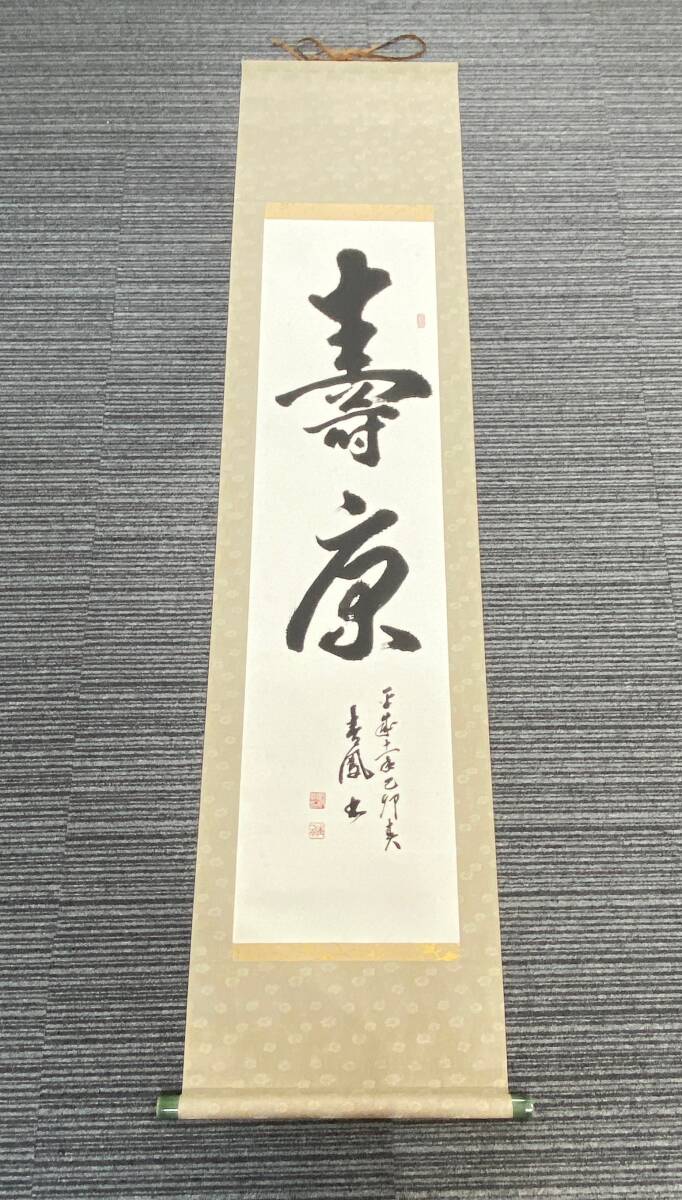 壽康
平成十一年己卯春
春鳳書